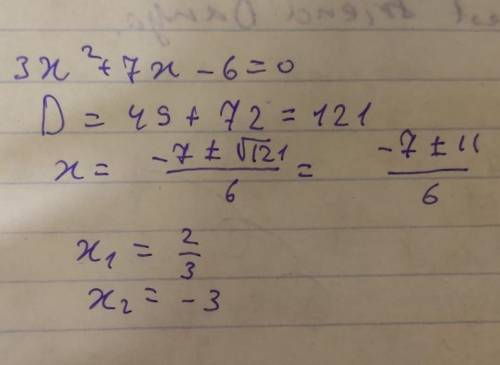 3x² + 7x - 6 = 0
D = 49 + 72 = 121
x = (-7 ± √121)/6 = (-7 ± 11)/6
x₁ = 2/3
x₂ = -3